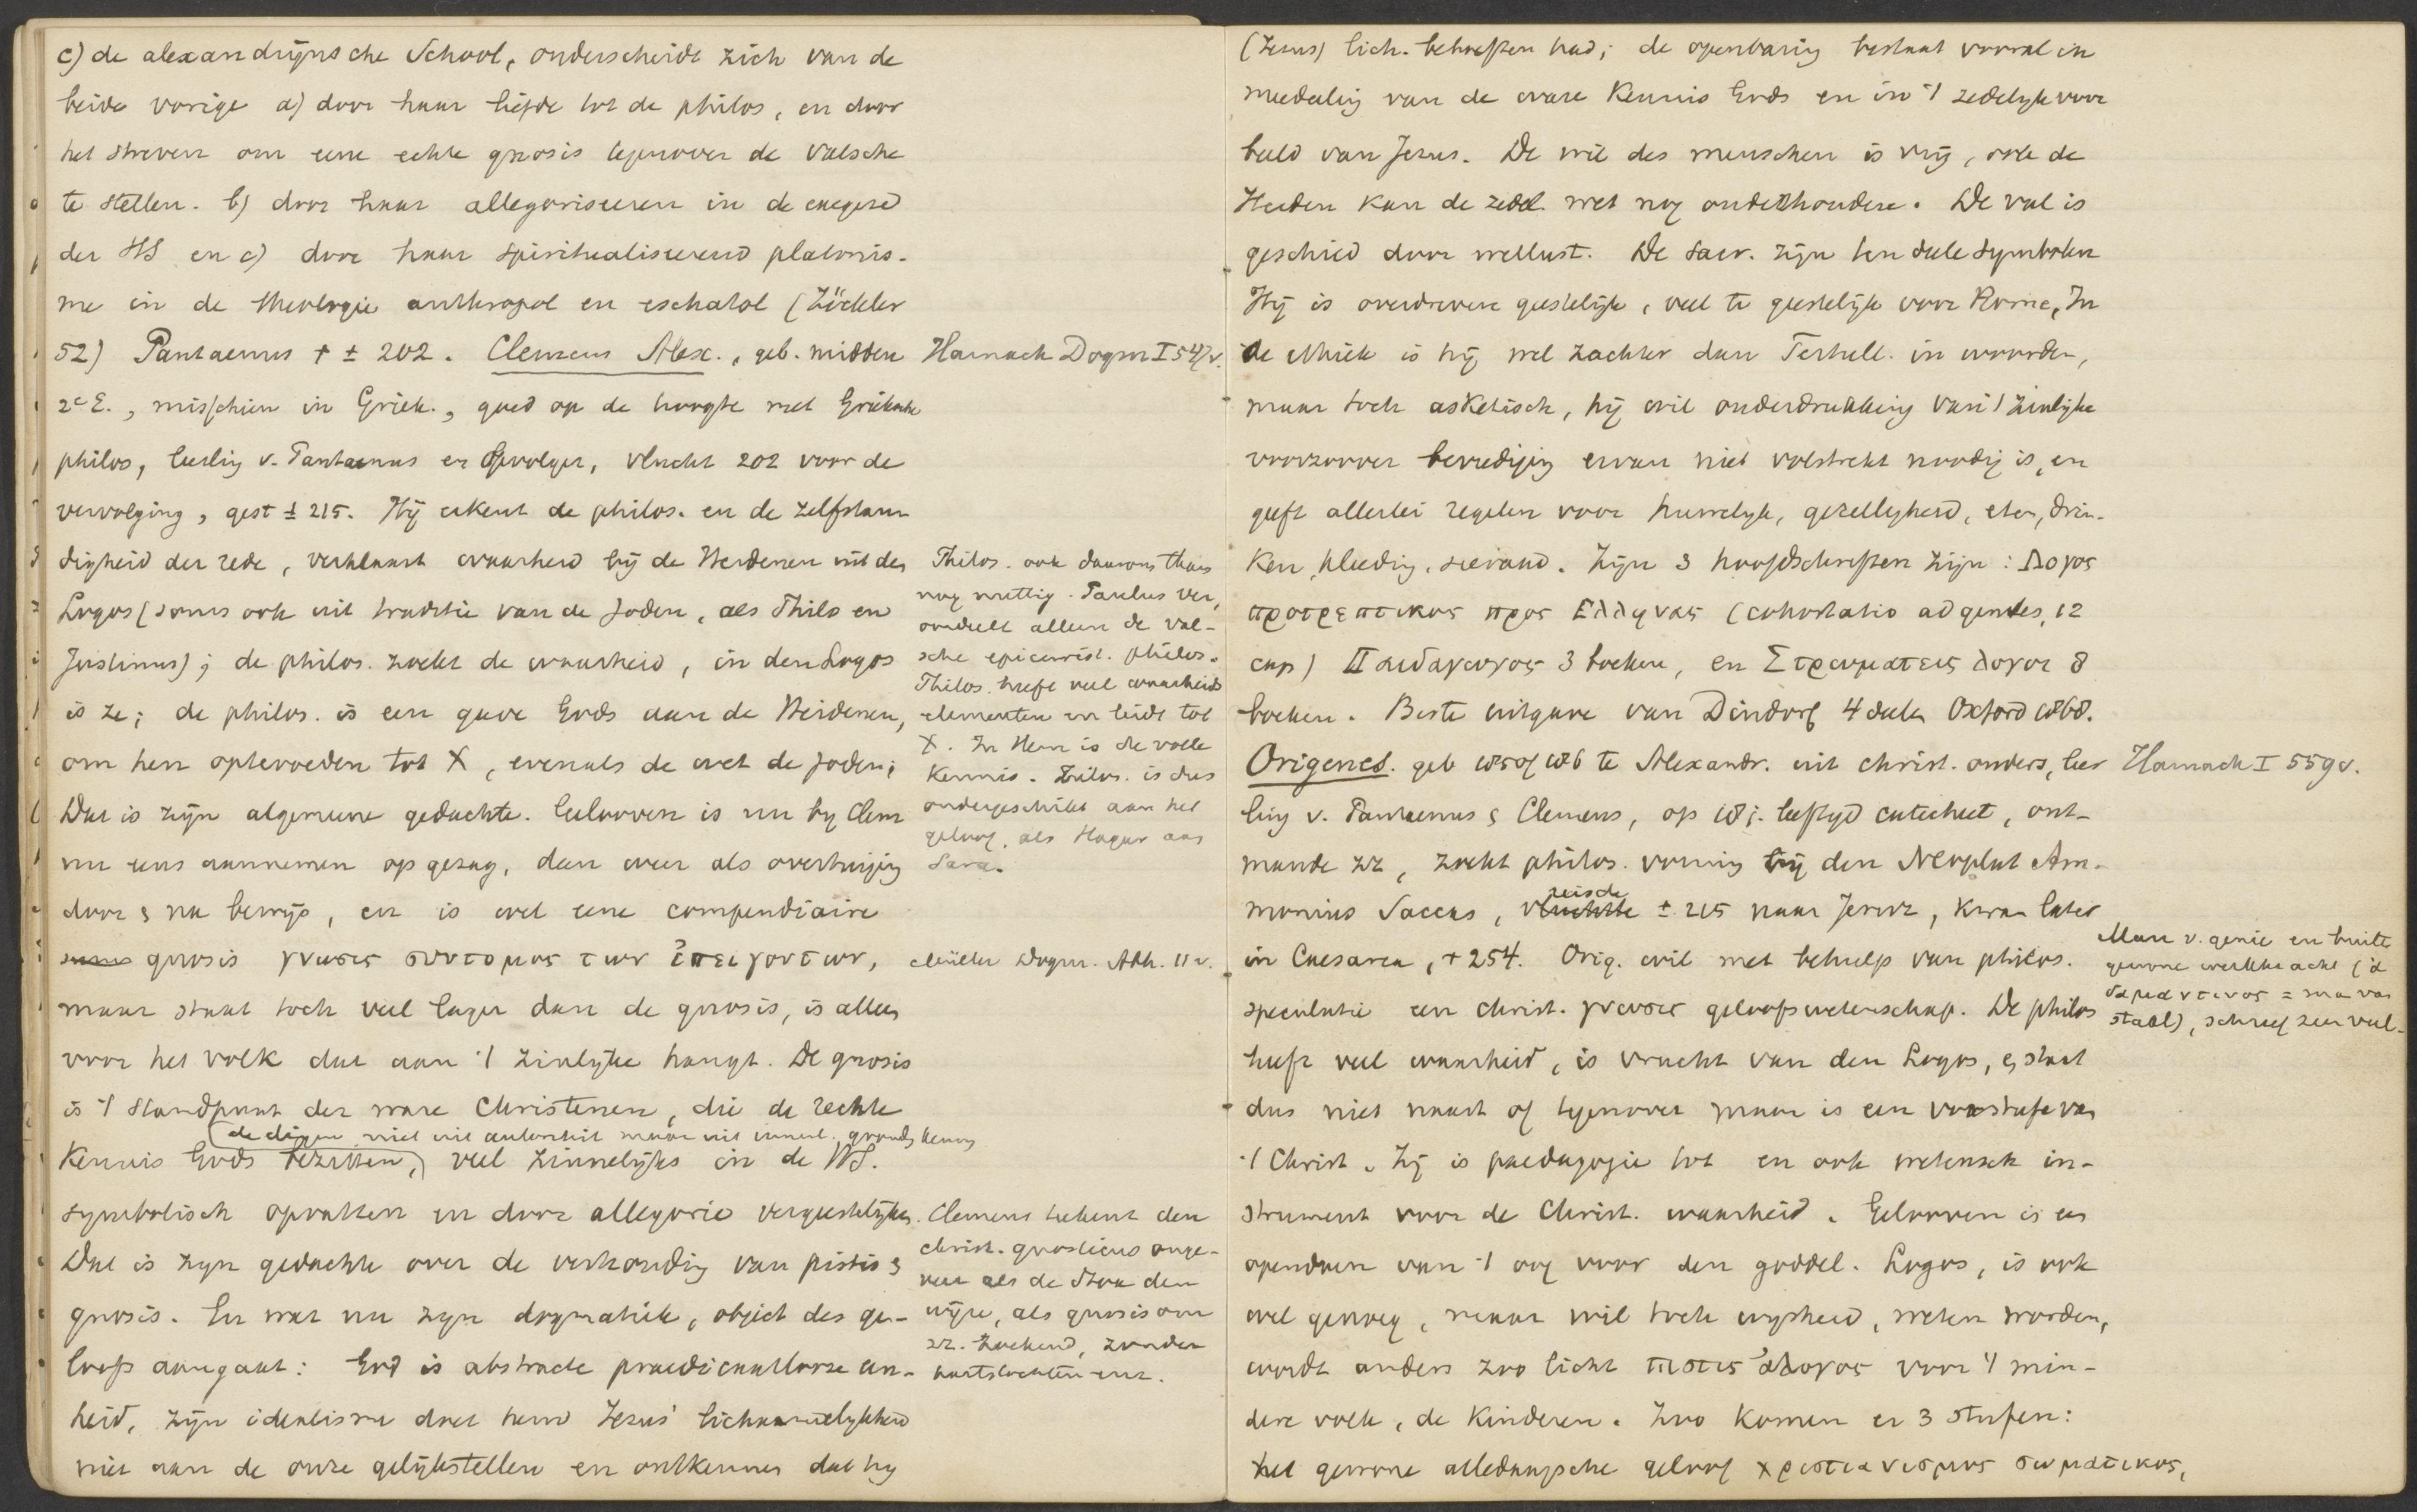 c) de alexandrijnsche School, onderscheidt zich van de
beide vorige a) door haar liefde tot de philos, en door
het streven om eene echte gnosis tegenover de valsche
te stellen. b) door haar allegoriseeren in de exegese
der HS en c) door haar spiritualiseerend platonis-
me in de theologie anthropol en eschatol (Zöckler
52) Pantaenus † ± 202. Clemens Alex., geb. midden
2e E., misschien in Griek., goed op de hoogte met Grieksche
philos, leerling v. Pantaenus en opvolger, vlucht 202 voor de
vervolging, gest ± 215. Hij erkent de philos. en de zelfstan
digheid der rede, verklaart waarheid bij de Heidenen uit den
Logos (soms ook uit traditie van de Joden, als Philo en
Justinus); de philos. zoekt de waarheid, in den Logos
is ze; de philos. is een gave Gods aan de Heidenen,
om hen optevoeden tot X, evenals de wet de Joden;
Dat is zijn algemeene gedachte. Gelooven is nu by Clem
nu eens aannemen op gezag, dan weer als overtuiging
door & na bewijs, en is wel eene compendiaire
gnosis γνωσις συντομος των ἐπειγοντων,
maar staat toch veel lager dan de gnosis, is alleen
voor het volk dat aan 't zinlijke hangt. De gnosis
is 't standpunt der ware Christenen, die de rechte
(de dingen niet uit autoriteit maar uit innerl. gronds kennen
Kennis Gods bezitten,) veel zinnelijks in de HS.
symbolisch opvatten en door allegorie vergeestelijken.
Dat is zijn gedachte over de verhouding van pistis &
gnosis. En wat nu zijn dogmatiek, object des ge-
loofs aangaat: God is abstracte praedicaatlooze een-
heid, zijn idealisme doet hem Jezus' lichaamelykheid
niet aan de onze gelijkstellen en ontkennen dat hij
Harnack Dogm I 547v.
Philos. ook daarom thans
nog nuttig. Paulus ver,
oordeelt alleen de val-
sche epicurist. philos.
Philos. heeft veel waarheids
elementen en leidt tot
X. In Hem is de volle
Kennis. Philos. is dus
ondergeschikt aan het
geloof, als Hagar aan
Sara.
Müller Dogm. Abh. 11 v.
Clemens tekent den
christ. gnosticus onge-
veer als de Stoa den
wijze, als gnosis om
zz. zoekend, zonder
hartstochten enz.
(Jezus) lich. behoeften had; de openbaring bestaat vooral in
mededeeling van de ware Kennis Gods en in 't zedelyke voor
beeld van Jezus. De wil des menschen is vrij, ook de
Heiden kan de zedel. wet nog onderhouden. De val is
geschied door wellust. De sacr. zijn ten deele symbolen
Hij is overdreven geestelijk, veel te geestelijk voor Rome, In
de ethiek is hij wel zachter dan Tertull. in woorden,
maar toch asketisch, hij wil onderdrukking van 't zinlijke
voorzoover bevrediging ervan niet volstrekt noodig is, en
geeft allerlei regelen voor huwelyk, gezellygheid, eten, drin-
ken, kleeding, sieraad. Zijn 3 hoofdschriften zijn: Λογος
προτρεπτικος προς Ελληνας (cohortatio ad gentes, 12
cap) Παιδαγωγος 3 boeken, en Στρωματεις λογοι 8
boeken. Beste uitgave van Dindorf 4 deelen Oxford 1868.
Origenes. geb 185 of 186 te Alexandr. uit christ. ouders, leer
ling v. Pantaenus & Clemens, op 18 j. leeftyd catecheet, ont-
mande zz, zoekt philos. vorming bij den Neoplat Am-
reisde
monius Saccas, vluchtte ± 215 naar Jeruz, kwam later
in Caesarea, † 254. Orig. wil met behulp van philos.
speculatie een christ. γνωσις geloofswetenschap. De philos
heeft veel waarheid, is vrucht van den Logos, & staat
dus niet naast of tegenover maar is een voorstufe van
't Christ. Zij is paedagogie tot en ook wetensch in-
strument voor de Christ. waarheid. Gelooven is een
opendoen van 't oog voor den goddel. Logos, is ook
wel genoeg, maar wil toch wysheid, weten worden,
wordt anders zoo licht πιστις ἀλογος voor 't min-
dere volk, de Kinderen. Zoo komen er 3 stufen:
het gewone alledaagsche geloof χριστιανισμος σωματικος,
Harnack I 559v.
Man v. genie en buiten
gewone werkkracht (ἀ
δαμαντινος = man van
staal), schreef zeer veel.